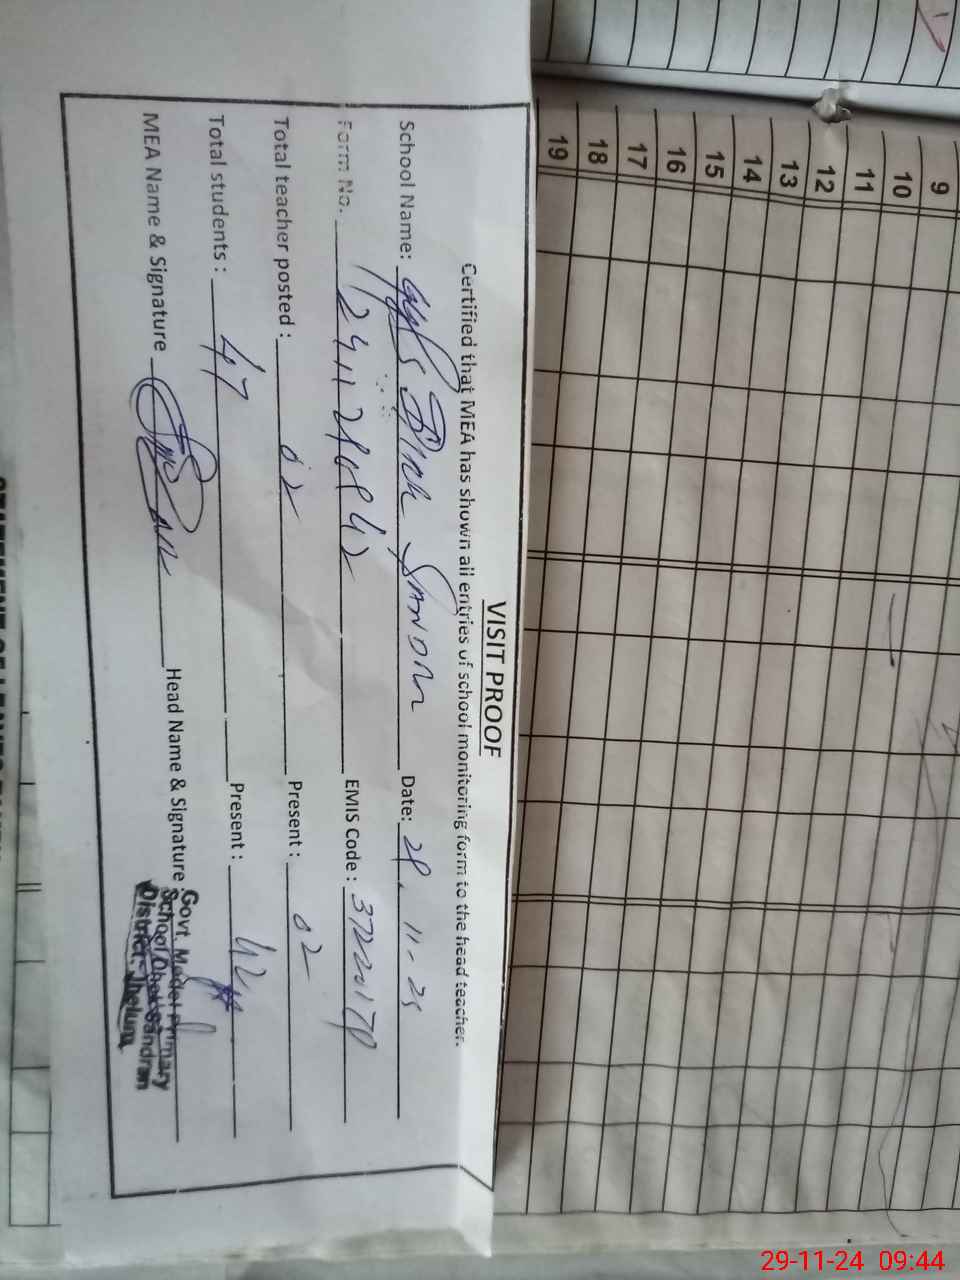 VISIT PROOF
Certified that MEA has shown all entries of school monitoring form to the head teacher.
School Name: Date: 28.11.25
Form No. EMIS Code: 37220170
Total teacher posted: 02 Present: 02
Total students: 47 Present: 42
MEA Name & Signature Head Name & Signature
Govt. Model Primary
School Chak Sandran
District. Jhelum
9
10
11
12
13
14
15
16
17
18
19
29-11-24 09:44